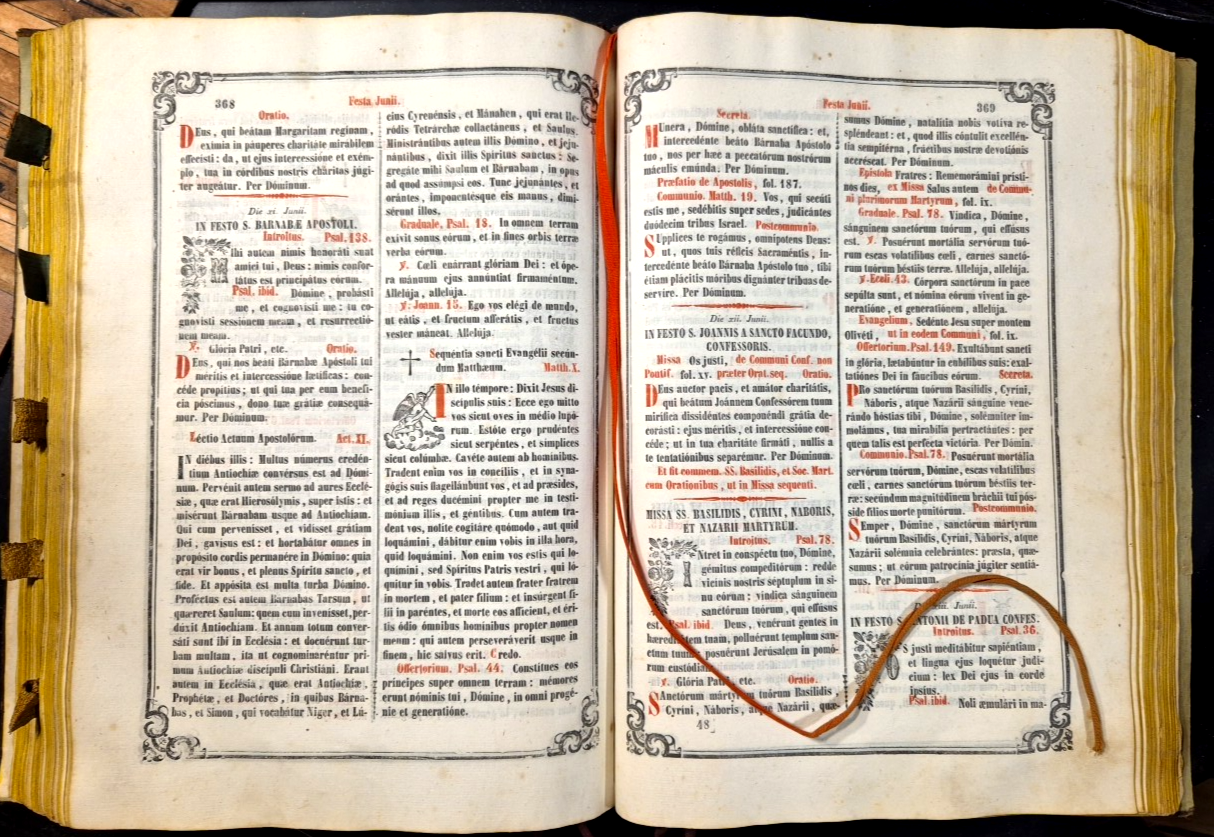 368
Festa Junii.
Oratio.
DEus, qui beátam Margaritam reginam,
eximia in páuperes charitáte mirabilem
effecisti: da, ut ejus intercessióne et exém-
plo, tua in córdibus nostris cháritas júgi-
ter augeátur. Per Dóminum.
Die xi. Junii.
IN FESTO S. BARNABÆ APOSTOLI.
Introitus. Psal. 138.
MIhi autem nimis honoráti sunt
amici tui, Deus: nimis confor-
tátus est principátus eórum.
Psal. ibid. Dómine, probásti
me, et cognovísti me: tu co-
gnovísti sessiónem meam, et resurrectió-
nem meam.
℣. Glória Patri, etc. Oratio.
DEus, qui nos beáti Bárnabæ Apóstoli tui
méritis et intercessióne lætíficas: con-
céde propítius; ut qui tua per eum benefí-
cia póscimus, dono tuæ grátiæ consequá-
mur. Per Dóminum.
Léctio Actuum Apostolórum. Act. XI.
IN diébus illis: Multus númerus credén-
tium Antiochíæ convérsus est ad Dómi-
num. Pervénit autem sermo ad aures Ecclé-
siæ, quæ erat Hierosólymis, super istis: et
misérunt Bárnabam usque ad Antiochíam.
Qui cum pervenísset, et vidísset grátiam
Dei, gavísus est: et hortabátur omnes in
propósito cordis permanére in Dómino: quia
erat vir bonus, et plenus Spíritu sancto, et
fide. Et appósita est multa turba Dómino.
Proféctus est autem Bárnabas Tarsum, ut
quæreret Saulum: quem cum invenísset, per-
dúxit Antiochíam. Et annum totum conver-
sáti sunt ibi in Ecclésia: et docuérunt tur-
bam multam, ita ut cognominaréntur pri-
mum Antiochíæ discípuli Christiáni. Erant
autem in Ecclésia, quæ erat Antiochíæ,
Prophétæ, et Doctóres, in quibus Bárna-
bas, et Simon, qui vocabátur Niger, et Lú-
cius Cyrenénsis, et Mánahen, qui erat He-
ródis Tetrárchæ collactáneus, et Saulus.
Ministrántibus autem illis Dómino, et jeju-
nántibus, dixit illis Spíritus sanctus: Se-
gregáte mihi Saulum et Bárnabam, in opus
ad quod assúmpsi eos. Tunc jejunántes, et
orántes, imponentésque eis manus, dimi-
sérunt illos.
Graduale. Psal. 18. In omnem terram
exívit sonus eórum, et in fines orbis terræ
verba eórum.
℣. Cœli enárrant glóriam Dei: et ópe-
ra mánuum ejus annúntiat firmaméntum.
Allelúja, allelúja.
℣. Joann. 15. Ego vos elégi de mundo,
ut eátis, et fructum afferátis, et fructus
vester máneat. Allelúja.
Sequéntia sancti Evangélii secún-
dum Matthæum. Matth. X.
IN illo témpore: Dixit Jesus di-
scípulis suis: Ecce ego mitto
vos sicut oves in médio lupó-
rum. Estóte ergo prudéntes
sicut serpéntes, et símplices
sicut colúmbæ. Cavéte autem ab homínibus.
Tradent enim vos in concíliis, et in syna-
gógis suis flagellábunt vos, et ad præsides,
et ad reges ducémini propter me in testi-
mónium illis, et géntibus. Cum autem tra-
dent vos, nolíte cogitáre quómodo, aut quid
loquámini, dábitur enim vobis in illa hora,
quid loquámini. Non enim vos estis qui lo-
químini, sed Spíritus Patris vestri, qui ló-
quitur in vobis. Tradet autem frater fratrem
in mortem, et pater fílium: et insúrgent fí-
lii in paréntes, et morte eos affícient, et éri-
tis ódio ómnibus homínibus propter nomen
meum: qui autem perseveráverit usque in
finem, hic salvus erit. Credo.
Offertorium. Psal. 44. Constítues eos
príncipes super omnem terram: mémores
erunt nóminis tui, Dómine, in omni progé-
nie et generatióne.
Festa Junii.
369
Secreta.
MUnera, Dómine, obláta sanctífica: et,
intercedénte beáto Bárnaba Apóstolo
tuo, nos per hæc a peccatórum nostrórum
máculis emúnda. Per Dóminum.
Præfatio de Apostolis, fol. 187.
Communio. Matth. 19. Vos, qui secúti
estis me, sedébitis super sedes, judicántes
duódecim tribus Israel. Postcommunio.
SUpplices te rogámus, omnípotens Deus:
ut, quos tuis réficis Sacraméntis, in-
tercedénte beáto Bárnaba Apóstolo tuo, tibi
étiam plácitis móribus dignánter tríbuas de-
servíre. Per Dóminum.
Die xii. Junii.
IN FESTO S. JOANNIS A SANCTO FACUNDO,
CONFESSORIS.
Missa Os justi, de Communi Conf. non
Pontif. fol. xv. præter Orat. seq. Oratio.
DEus auctor pacis, et amátor charitátis,
qui beátum Joánnem Confessórem tuum
mirífica dissidéntes componéndi grátia de-
corásti: ejus méritis, et intercessióne con-
céde; ut in tua charitáte firmáti, nullis a
te tentatiónibus separémur. Per Dóminum.
Et fit commem. SS. Basilidis, et Soc. Mart.
cum Orationibus, ut in Missa sequenti.
MISSA SS. BASILIDIS, CYRINI, NABORIS,
ET NAZARII MARTYRUM.
Introitus. Psal. 78.
INtret in conspéctu tuo, Dómine,
gémitus compeditórum: redde
vicínis nostris séptuplum in si-
nu eórum: víndica sánguinem
sanctórum tuórum, qui effúsus
est. Psal. ibid. Deus, venérunt gentes in
hæreditátem tuam, polluérunt templum san-
ctum tuum, posuérunt Jerúsalem in pomó-
rum custódiam.
℣. Glória Patri, etc. Oratio.
SAnctórum mártyrum tuórum Basílidis,
Cyríni, Náboris, atque Nazárii, quæ-
48
sumus Dómine, natalítia nobis votíva re-
spléndeant: et, quod illis cóntulit excellén-
tia sempitérna, frúctibus nostræ devotiónis
accréscat. Per Dóminum.
Epistola Fratres: Rememorámini prísti-
nos dies, ex Missa Salus autem de Commu-
ni plurimorum Martyrum, fol. ix.
Graduale. Psal. 78. Víndica, Dómine,
sánguinem sanctórum tuórum, qui effúsus
est. ℣. Posuérunt mortália servórum tuó-
rum escas volatílibus cœli, carnes sanctó-
rum tuórum béstiis terræ. Allelúja, allelúja.
℣. Eccli. 43. Córpora sanctórum in pace
sepúlta sunt, et nómina eórum vivent in ge-
neratióne, et generatiónem, allelúja.
Evangelium. Sedénte Jesu super montem
Olivéti, ut in eodem Communi, fol. ix.
Offertorium. Psal. 149. Exultábunt sancti
in glória, lætabúntur in cubílibus suis: exal-
tatiónes Dei in fáucibus eórum. Secreta.
PRo sanctórum tuórum Basílidis, Cyríni,
Náboris, atque Nazárii sánguine vene-
rándo hóstias tibi, Dómine, solémniter im-
molámus, tua mirabília pertractántes: per
quem talis est perfécta victória. Per Dómin.
Communio. Psal. 78. Posuérunt mortália
servórum tuórum, Dómine, escas volatílibus
cœli, carnes sanctórum tuórum béstiis ter-
ræ: secúndum magnitúdinem bráchii tui pós-
side fílios morte punitórum. Postcommunio.
SEmper, Dómine, sanctórum mártyrum
tuórum Basílidis, Cyríni, Náboris, atque
Nazárii solémnia celebrántes: præsta, quæ-
sumus; ut eórum patrocínia júgiter sentiá-
mus. Per Dóminum.
Die xiii. Junii.
IN FESTO S. ANTONII DE PADUA CONFES.
Introitus. Psal. 36.
OS justi meditábitur sapiéntiam,
et lingua ejus loquétur judí-
cium: lex Dei ejus in corde
ipsíus.
Psal. ibid. Noli æmulári in ma-